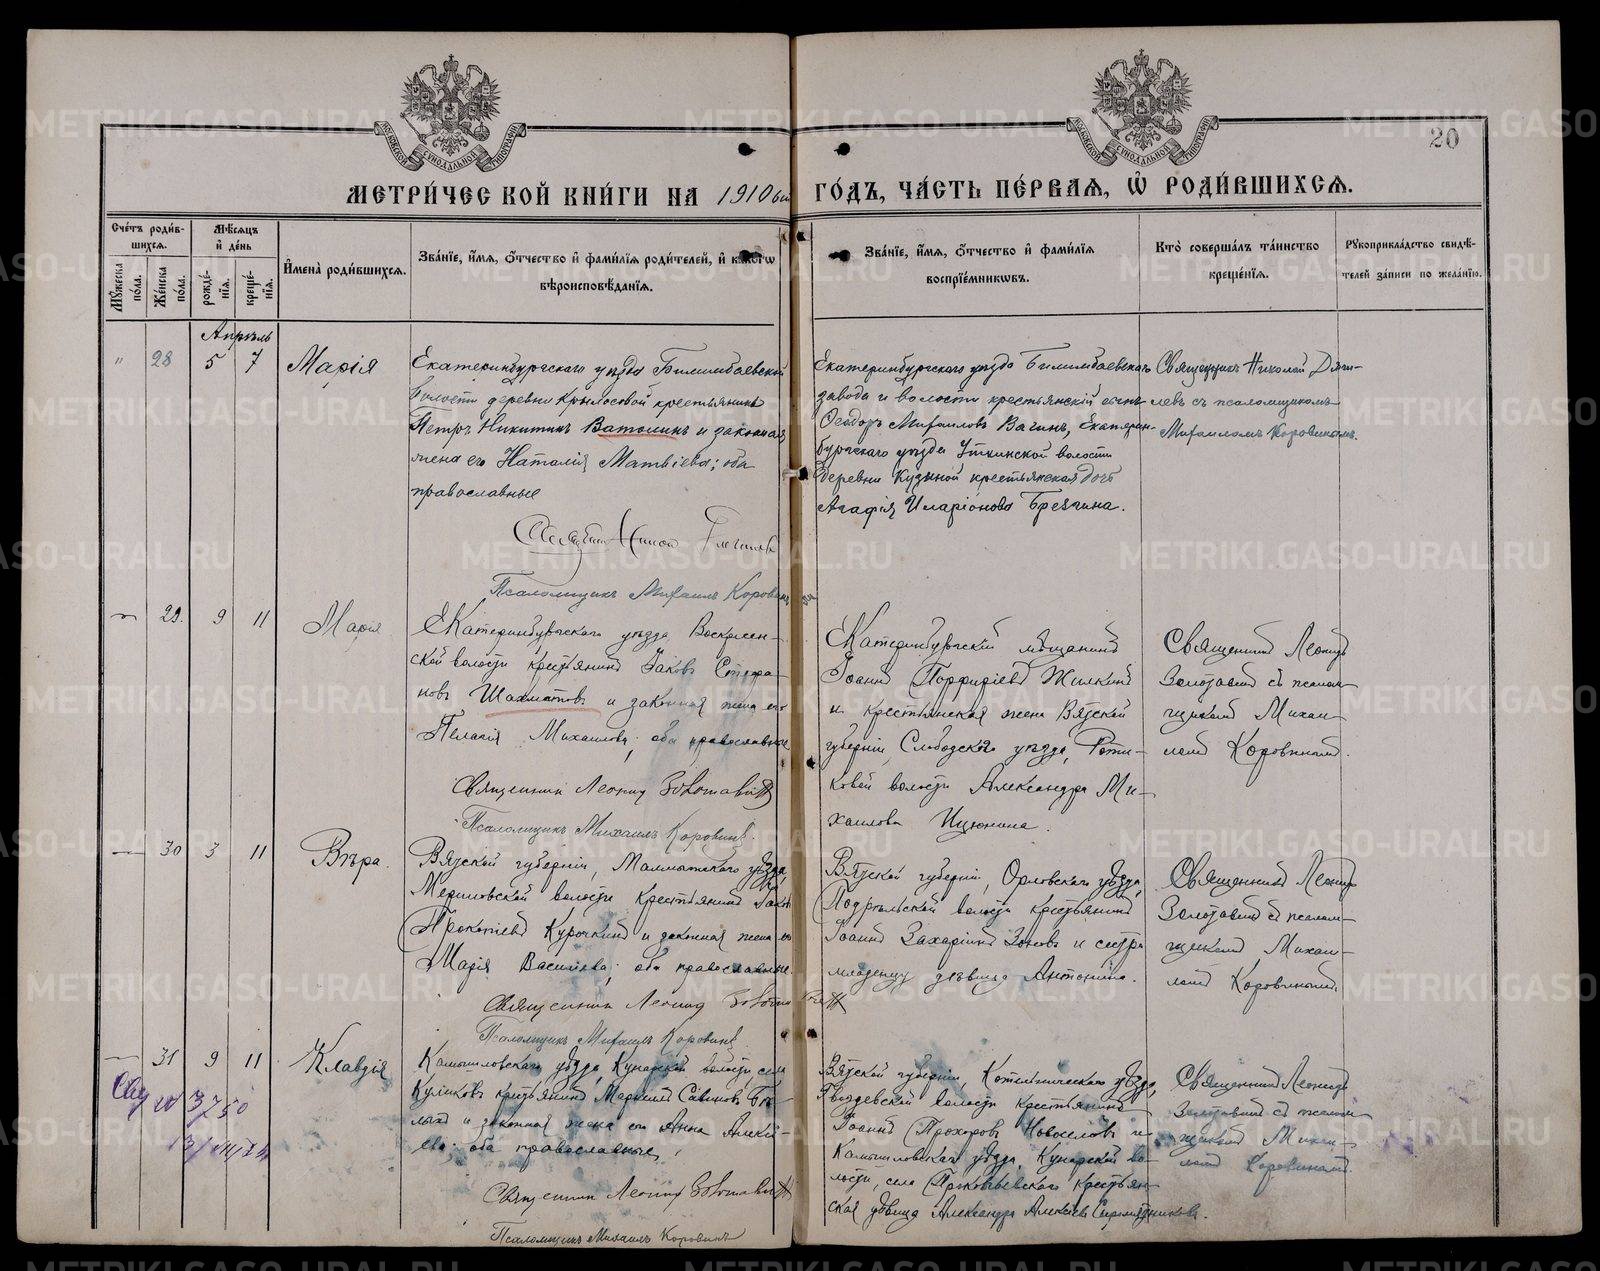 МЕТРИЧЕСКОЙ КНИГИ НА 1910 ый ГОДЪ, ЧАСТЬ ПЕРВАЯ, Ѡ РОДИВШИХСЯ.
20
Счетъ родившихся.
Мужеска пола.
Женска пола.
Мѣсяцъ и день
рожденія.
крещенія.
Имена родившихся.
Званіе, имя, отчество и фамилія родителей, и какогѡ
вѣроисповѣданія.
Званіе, имя, отчество и фамилія
воспріемниковъ.
Кто совершалъ таинство
крещенія.
Рукоприкладство свидѣ-
телей записи по желанію.
Апрѣль
" 28 5 7 Марія
Екатеринбургскаго уѣзда Билимбаевской
волости деревни Крылосовой крестьянинъ
Петръ Никитинъ Ватолинъ и законная
жена его Наталія Матвіева; оба
православные
Псаломщикъ Михаилъ Коровинъ
Екатеринбургскаго уѣзда Билимбаевскаго
завода и волости крестьянскій сынъ
Ѳеодоръ Михаиловъ Вагинъ, Екатерин-
бургскаго уѣзда Уткинской волости
деревни Кузиной крестьянская дочь
Агафія Иларіонова Брезгина.
Священникъ Николай Дяги-
левъ съ псаломщикомъ
Михаиломъ Коровинымъ.
29. 9 11 Марія
Екатеринбургскаго уѣзда, Воскресен-
ской волости крестьянинъ Іаковъ Стефа-
новъ Шахматовъ и законная жена его
Пелагія Михаилова; оба православные
Священникъ Леонид Золотавинъ
Псаломщикъ Михаилъ Коровинъ.
Екатеринбургскій мѣщанинъ
Іоаннъ Порфиріевъ Жилкинъ
и крестьянская жена Вятской
губерніи, Слободскаго уѣзда,
волости Александра Ми-
хаилова
Священникъ Леонидъ
Золотавинъ съ псалом-
щикомъ Михаи-
ломъ Коровинымъ.
30 3 11 Вѣра.
Вятской губерніи, Малмыжскаго уѣзда,
волости крестьянинъ Іаковъ
Прокопіевъ Курочкинъ и законная жена его
Марія Василіева; оба православные.
Священникъ Леонид Золотавинъ
Псаломщикъ Михаилъ Коровинъ.
Вятской губерніи, Орловскаго уѣзда,
Подрѣльской волости крестьянинъ
Іоаннъ Захаріинъ Зоновъ и сестра
младенцу дѣвица Антонина.
Священникъ Леонидъ
Золотавинъ съ псалом-
щикомъ Михаи-
ломъ Коровинымъ.
31 9 11 Клавдія
Камышловскаго уѣзда, Кунарской волости, села
крестьянинъ Савиновъ Бѣ-
лыхъ и законная жена его Анна Алексі-
ева; оба православные.
Священникъ Леонид Золотавинъ
Псаломщикъ Михаилъ Коровинъ
Вятской губерніи, Котельническаго уѣзда,
Гвоздевской волости крестьянинъ
Іоаннъ Прохоровъ Новоселовъ и
Камышловскаго уѣзда, Кунарской во-
лости, села Прокопьевскаго крестьян-
ская дѣвица Александра Алексіева
Священникъ Леонидъ
Золотавинъ съ псалом-
щикомъ Михаи-
ломъ Коровинымъ.
METRIKI.GASO-URAL.RU